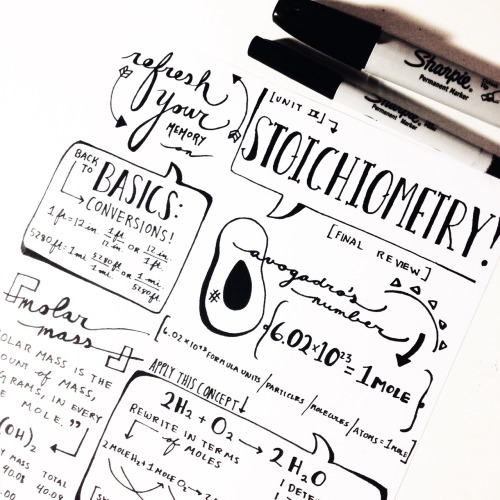 refresh
your
MEMORY
on
[UNIT IV]
STOICHIOMETRY!
[FINAL REVIEW]
Sharpie.
Permanent Marker
Sharpie.
Permanent Marker
BACK
TO
BASICS:
CONVERSIONS!
1 ft = 12 in 1 ft / 12 in OR 12 in / 1 ft.
5280 ft = 1 mi 5280 ft / 1 mi OR 1 mi / 5280 ft
avogadro's
number
#
{6.02×10²³ = 1 MOLE}
[6.02×10²³ FORMULA UNITS/PARTICLES/MOLECULES/ATOMS = 1 MOLE]
molar
mass
OLAR MASS IS THE
OUNT OF MASS,
GRAMS, IN EVERY
MOLE."
(OH)₂
MASS TOTAL
40.08 40.08
APPLY THIS CONCEPT↓
2H₂ + O₂ → 2H₂O
REWRITE IN TERMS
of MOLES
2 MOLE H₂ + 1 MOLE O₂ → 2
1 DETE